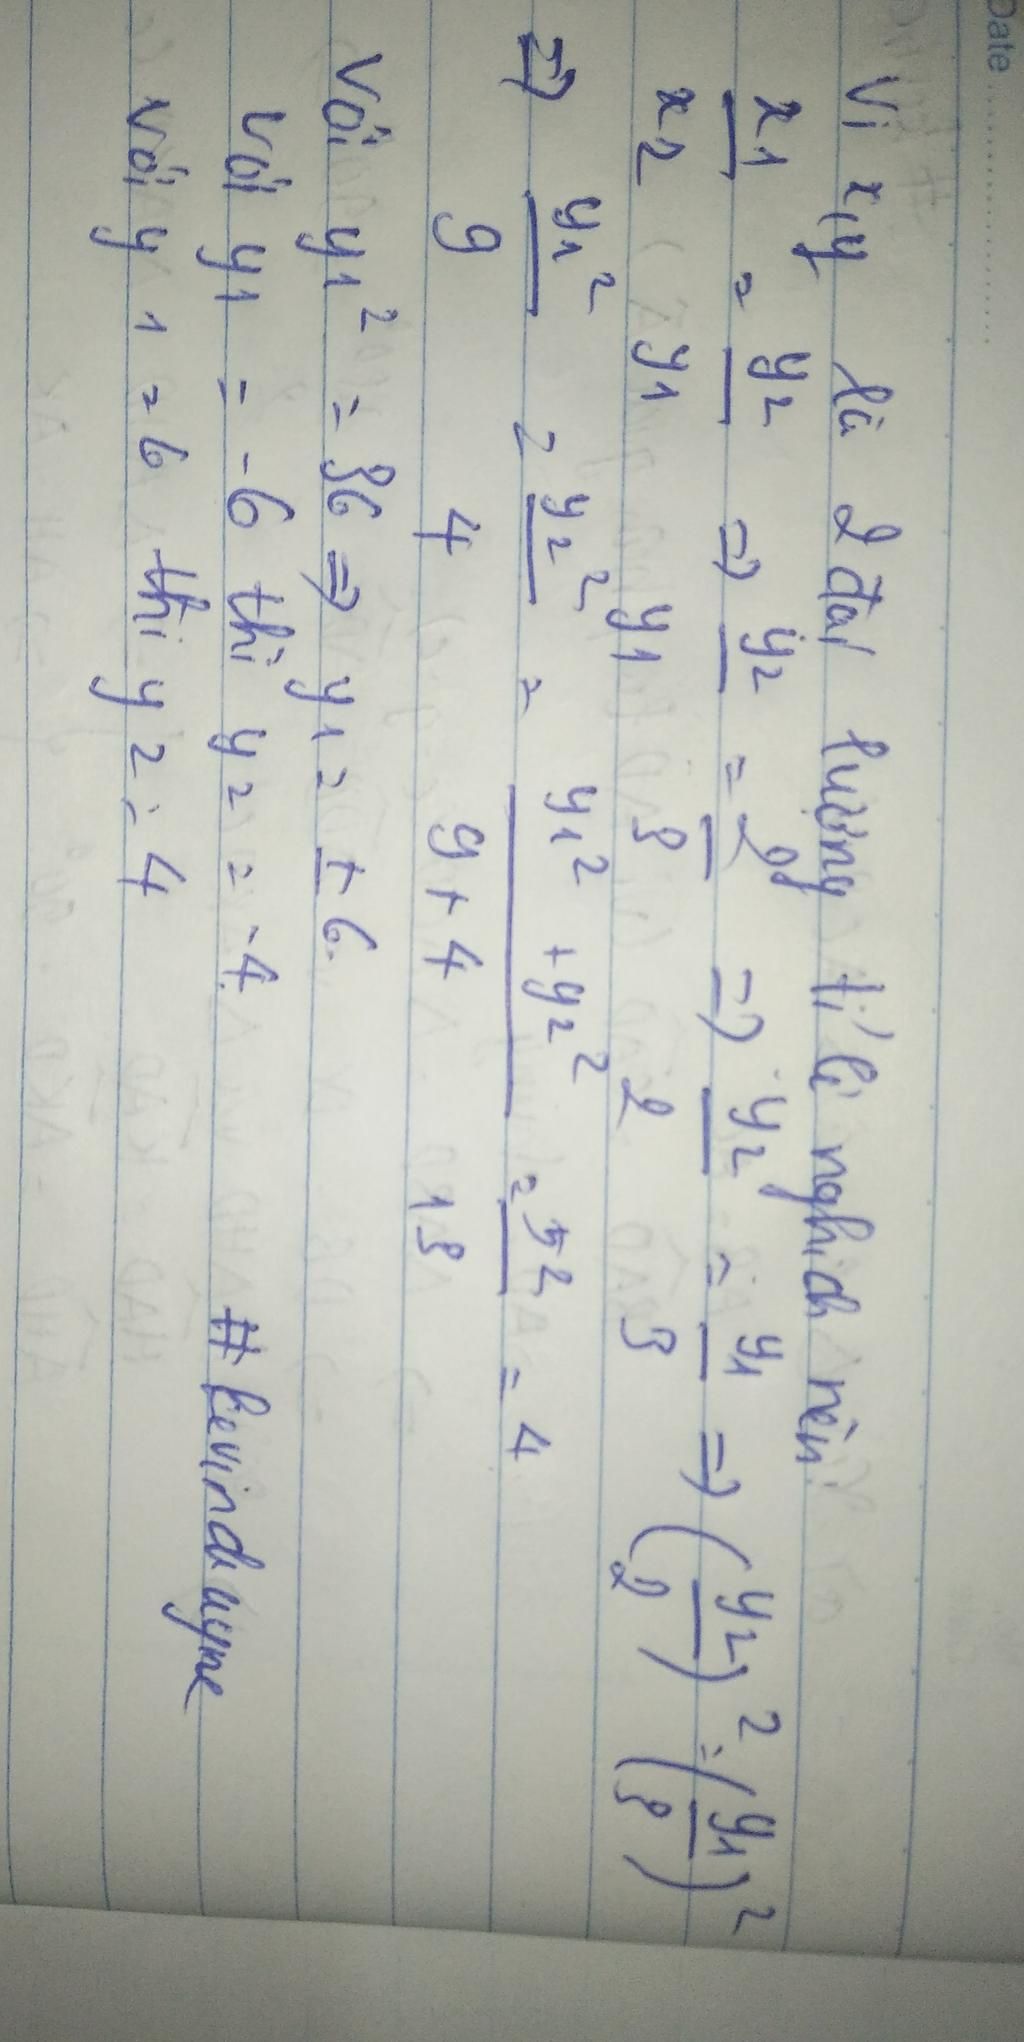 Date
Vì x, y là 2 đại lượng tỉ lệ nghịch nên:
x1/x2 = y2/y1 => y2/y1 = 2/3 => y2/2 = y1/3 => (y2/2)² = (y1/3)²
=> y1²/9 = y2²/4 = y1² + y2²/9+4 = 52/13 = 4
Với y1² = 36 => y1 = ± 6
Với y1 = -6 thì y2 = -4
Với y1 = 6 thì y2 = 4